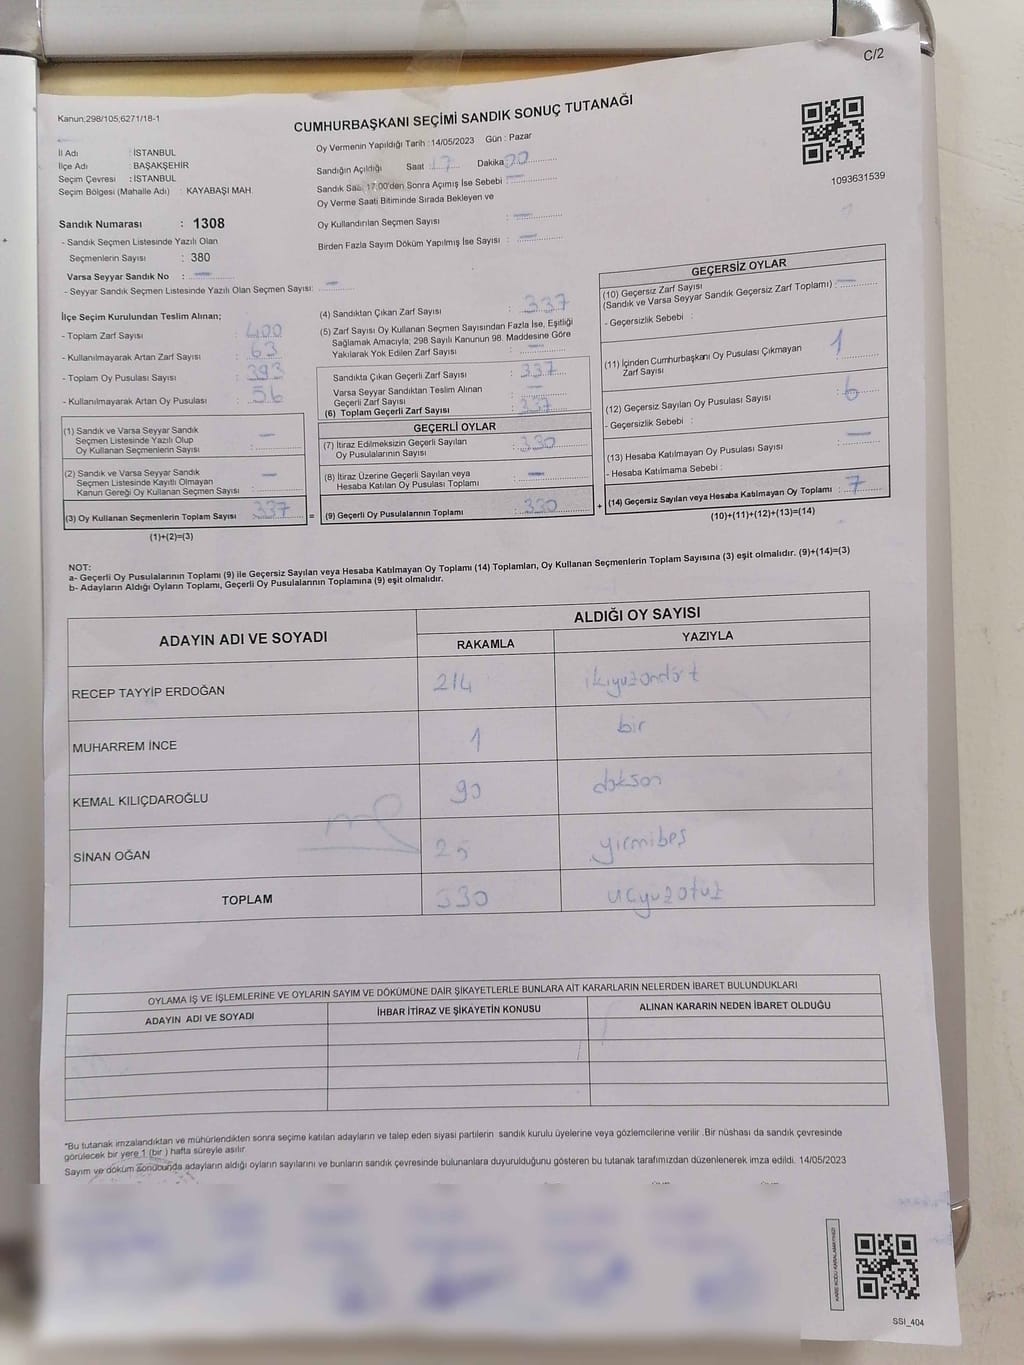 C/2
Kanun;298/105;6271/18-1
CUMHURBAŞKANI SEÇİMİ SANDIK SONUÇ TUTANAĞI
1093631539
İl Adı : İSTANBUL
İlçe Adı : BAŞAKŞEHİR
Seçim Çevresi : İSTANBUL
Seçim Bölgesi (Mahalle Adı) : KAYABAŞI MAH.
Sandık Numarası : 1308
- Sandık Seçmen Listesinde Yazılı Olan
Seçmenlerin Sayısı : 380
Varsa Seyyar Sandık No : —
- Seyyar Sandık Seçmen Listesinde Yazılı Olan Seçmen Sayısı: —
Oy Vermenin Yapıldığı Tarih : 14/05/2023 Gün : Pazar
Sandığın Açıldığı Saat 17 Dakika 20
Sandık Saat 17:00'den Sonra Açımış İse Sebebi : —
Oy Verme Saati Bitiminde Sırada Bekleyen ve
Oy Kullandırılan Seçmen Sayısı : —
Birden Fazla Sayım Döküm Yapılmış İse Sayısı : —
İlçe Seçim Kurulundan Teslim Alınan;
- Toplam Zarf Sayısı : 400
- Kullanılmayarak Artan Zarf Sayısı : 63
- Toplam Oy Pusulası Sayısı : 393
- Kullanılmayarak Artan Oy Pusulası : 56
(1) Sandık ve Varsa Seyyar Sandık
Seçmen Listesinde Yazılı Olup
Oy Kullanan Seçmenlerin Sayısı : —
(2) Sandık ve Varsa Seyyar Sandık
Seçmen Listesinde Kayıtlı Olmayan
Kanun Gereği Oy Kullanan Seçmen Sayısı : —
(3) Oy Kullanan Seçmenlerin Toplam Sayısı : 337
(1)+(2)=(3)
(4) Sandıktan Çıkan Zarf Sayısı : 337
(5) Zarf Sayısı Oy Kullanan Seçmen Sayısından Fazla İse, Eşitliği
Sağlamak Amacıyla, 298 Sayılı Kanunun 98. Maddesine Göre
Yakılarak Yok Edilen Zarf Sayısı : —
Sandıkta Çıkan Geçerli Zarf Sayısı : 337
Varsa Seyyar Sandıktan Teslim Alınan
Geçerli Zarf Sayısı : —
(6) Toplam Geçerli Zarf Sayısı : 337
GEÇERLİ OYLAR
(7) İtiraz Edilmeksizin Geçerli Sayılan
Oy Pusulalarının Sayısı : 330
(8) İtiraz Üzerine Geçerli Sayılan veya
Hesaba Katılan Oy Pusulası Toplamı : —
= (9) Geçerli Oy Pusulalarının Toplamı : 330
GEÇERSİZ OYLAR
(10) Geçersiz Zarf Sayısı
(Sandık ve Varsa Seyyar Sandık Geçersiz Zarf Toplamı) : —
- Geçersizlik Sebebi :
(11) İçinden Cumhurbaşkanı Oy Pusulası Çıkmayan
Zarf Sayısı : 1
(12) Geçersiz Sayılan Oy Pusulası Sayısı : 6
- Geçersizlik Sebebi :
(13) Hesaba Katılmayan Oy Pusulası Sayısı : —
- Hesaba Katılmama Sebebi :
+ (14) Geçersiz Sayılan veya Hesaba Katılmayan Oy Toplamı : 7
(10)+(11)+(12)+(13)=(14)
NOT:
a- Geçerli Oy Pusulalarının Toplamı (9) ile Geçersiz Sayılan veya Hesaba Katılmayan Oy Toplamı (14) Toplamları, Oy Kullanan Seçmenlerin Toplam Sayısına (3) eşit olmalıdır. (9)+(14)=(3)
b- Adayların Aldığı Oyların Toplamı, Geçerli Oy Pusulalarının Toplamına (9) eşit olmalıdır.
ADAYIN ADI VE SOYADI ALDIĞI OY SAYISI
RAKAMLA YAZIYLA
RECEP TAYYİP ERDOĞAN 214 ikiyüzondört
MUHARREM İNCE 1 bir
KEMAL KILIÇDAROĞLU 90 doksan
SİNAN OĞAN 25 yirmibeş
TOPLAM 330 üçyüzotuz
OYLAMA İŞ VE İŞLEMLERİNE VE OYLARIN SAYIM VE DÖKÜMÜNE DAİR ŞİKAYETLERLE BUNLARA AİT KARARLARIN NELERDEN İBARET BULUNDUKLARI
ADAYIN ADI VE SOYADI İHBAR İTİRAZ VE ŞİKAYETİN KONUSU ALINAN KARARIN NEDEN İBARET OLDUĞU
*Bu tutanak imzalandıktan ve mühürlendikten sonra seçime katılan adayların ve talep eden siyasi partilerin sandık kurulu üyelerine veya gözlemcilerine verilir .Bir nüshası da sandık çevresinde
görülecek bir yere 1 (bir ) hafta süreyle asılır
Sayım ve döküm sonucunda adayların aldığı oyların sayılarını ve bunların sandık çevresinde bulunanlara duyurulduğunu gösteren bu tutanak tarafımızdan düzenlenerek imza edildi. 14/05/2023
KARE KODU KARALAMAYINIZ!
SSI_404